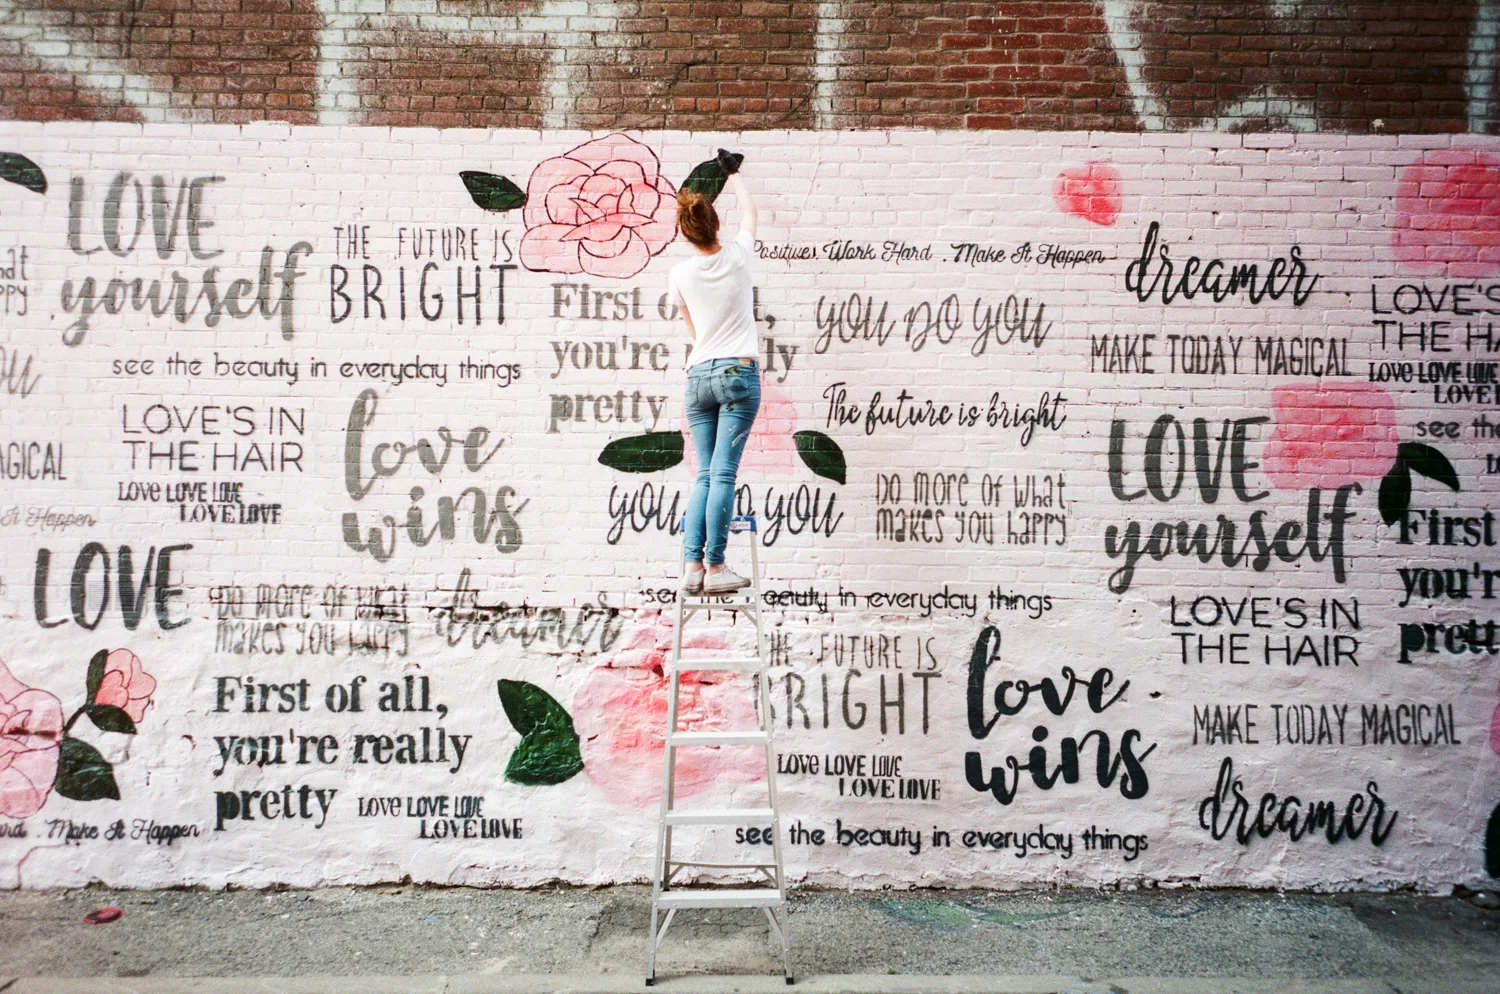 LOVE
yourself
THE FUTURE IS
BRIGHT
see the beauty in everyday things
First
you're
pretty
Positive. Work Hard . Make It Happen
YOU DO YOU
The future is bright
dreamer
MAKE TODAY MAGICAL
LOVE'S
THE HA
LOVE LOVE LOVE
LOVE
LOVE'S IN
THE HAIR
LOVE LOVE LOVE
LOVE LOVE
love
wins
MAGICAL
It Happen
YOU DO YOU
DO MORE OF WHAT
MAKES YOU HAPPY
LOVE
yourself
see the
First
you'r
prett
LOVE
DO MORE OF WHAT
MAKES YOU HAPPY
dreamer
see the beauty in everyday things
LOVE'S IN
THE HAIR
First of all,
you're really
pretty
LOVE LOVE LOVE
LOVE LOVE
Make It Happen
THE FUTURE IS
BRIGHT
LOVE LOVE LOVE
LOVE LOVE
love
wins
MAKE TODAY MAGICAL
dreamer
see the beauty in everyday things